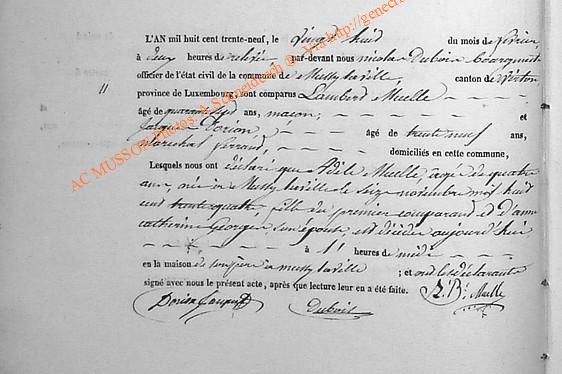 L'AN mil huit cent trente-neuf, le Vingt huit du mois de février,
à deux heures de relevée, par-devant nous nicolas Dubois Bourgmestre
officier de l'état civil de la commune de Mussy laville, canton de Virton,
11 province de Luxembourg, sont comparus Lambert Muelle
âgé de quarante sept ans, maçon, et
Jacques Dorion, âgé de trente neuf ans,
maréchal ferrand, domiciliés en cette commune,
Lesquels nous ont déclaré que Adèle Muelle, agée de quatre
ans, née à Mussy laville le seize novembre mil huit
cent trente quatre, fille du premier comparant et d'anne
catherine Georges son épouse, est décédée aujourd'hui,
à 11 heures de midi
en la maison de son père à mussy laville ; et ont les déclarants
signé avec nous le présent acte, après que lecture leur en a été faite.
Dorion Dubois Muelle
AC MUSSON Photos A. Schneidesch @ Via http://genecr